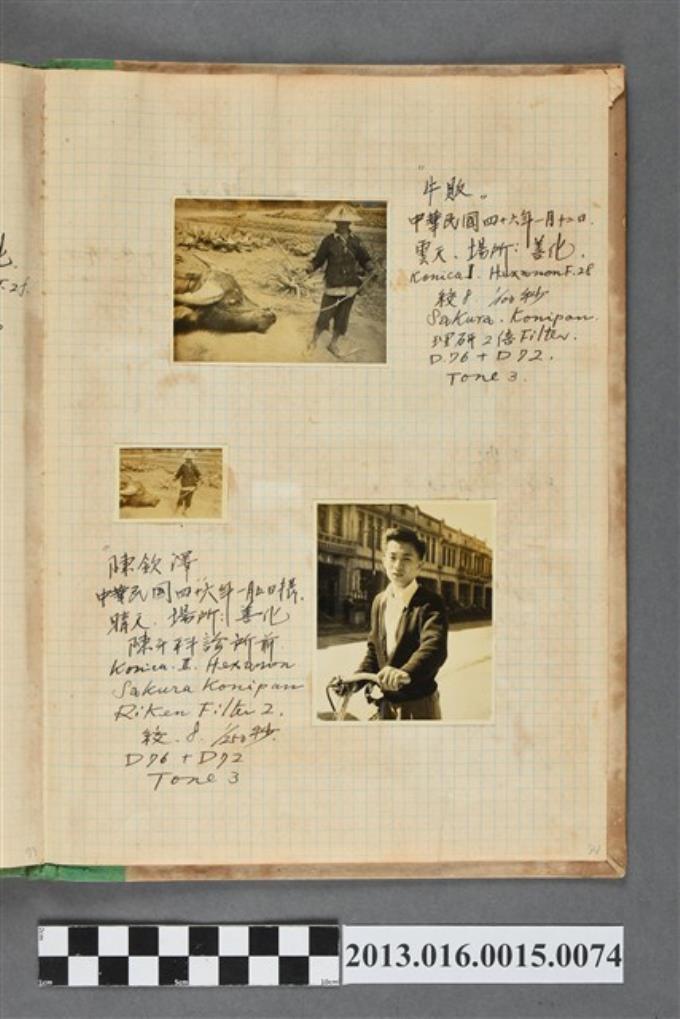 "牛販"
中華民國四十六年一月十二日.
雲天. 場所:善化.
Konica Ⅱ. Hexanon F.28
絞 8. 1/100秒
Sakura. Konipan.
理研2倍Filter.
D.76 + D72.
Tone 3.
"陳欽澤
中華民國四十六年一月 日攝.
晴天. 場所:善化
陳牙科診所前.
Konica. Ⅱ. Hexanon
Sakura Konipan
Riken Filter 2.
絞. 8. 1/250秒.
D76 + D72
Tone 3
F.2f.
1cm
5cm
10cm
2013.016.0015.0074